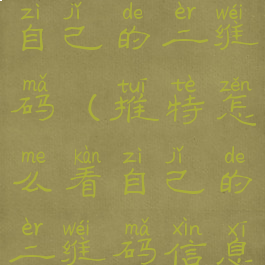 zì jǐ de èr wéi
自己的二维
mǎ tuī tè zěn
码(推特怎
me kàn zì jǐ de
么看自己的
èr wéi mǎ xìn xī
二维码信息